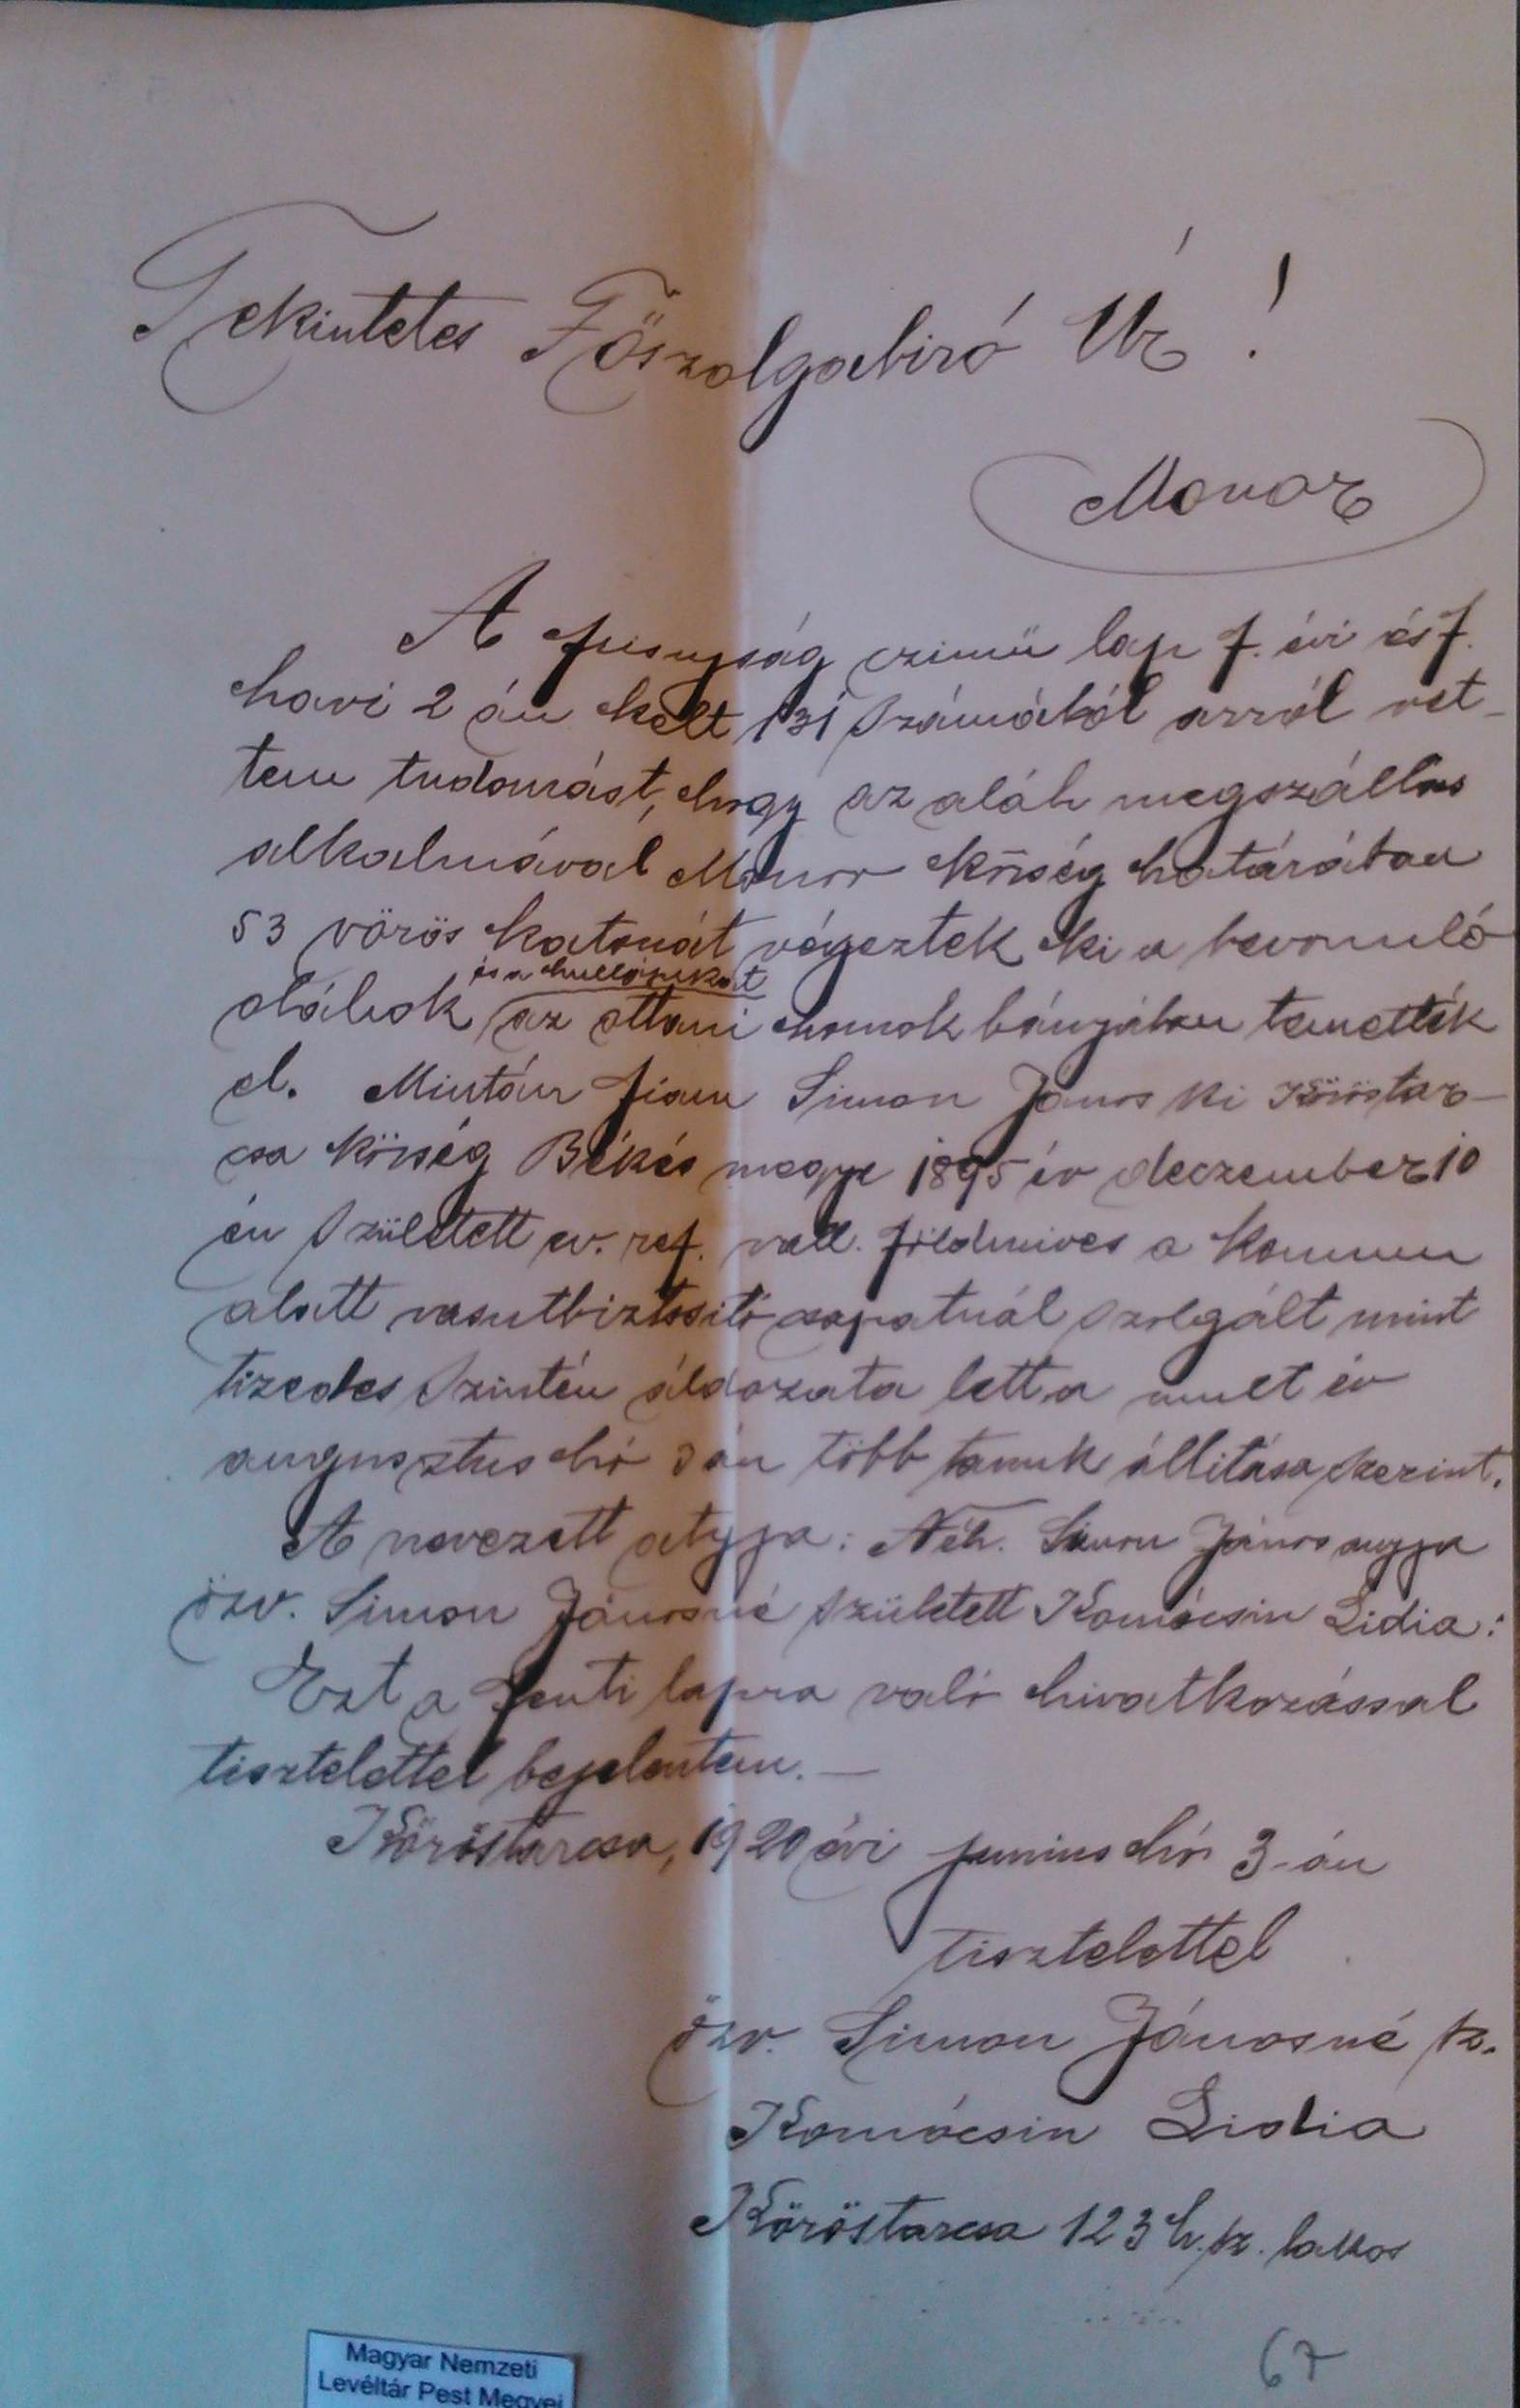 Tekintetes Főszolgabiró Úr!
Monor
A Ujság czimü lap f. évi és f.
havi 2 án kelt 131 számából arról vet-
tem tudomást, hogy az oláh megszállás
alkalmával Monor község határában
53 vörös katonát végeztek ki a bevonuló
és a hullájukat
oláhok az ottani homok bányában temették
el. Miután fiam Simon János ki Köröstar-
csa község Békés megye 1895 év deczember 10
én született ev. ref. vall. földmives a kommun
alatt vasutbiztositó csapatnál szolgált mint
tizedes szintén áldozata lett a mult év
augusztus hó 3 án több tanuk állitása szerint.
A nevezett atyja: Néh. Simon János anyja
özv. Simon Jánosné született Komócsin Lidia:
Ezt a fenti lapra való hivatkozással
tisztelettel bejelentem. —
Köröstarcsa, 1920 évi junius hó 3-án
tisztelettel
özv. Simon Jánosné sz.
Komócsin Lidia
Köröstarcsa 123 h. sz. lakos
67
Magyar Nemzeti
Levéltár Pest Megyei